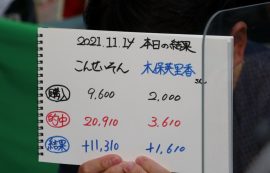 2021.11.14 本日の結果
こんせいそん 木保美里香
購入 9,600 2,000
的中 20,910 3,610
結果 +11,310 +1,610